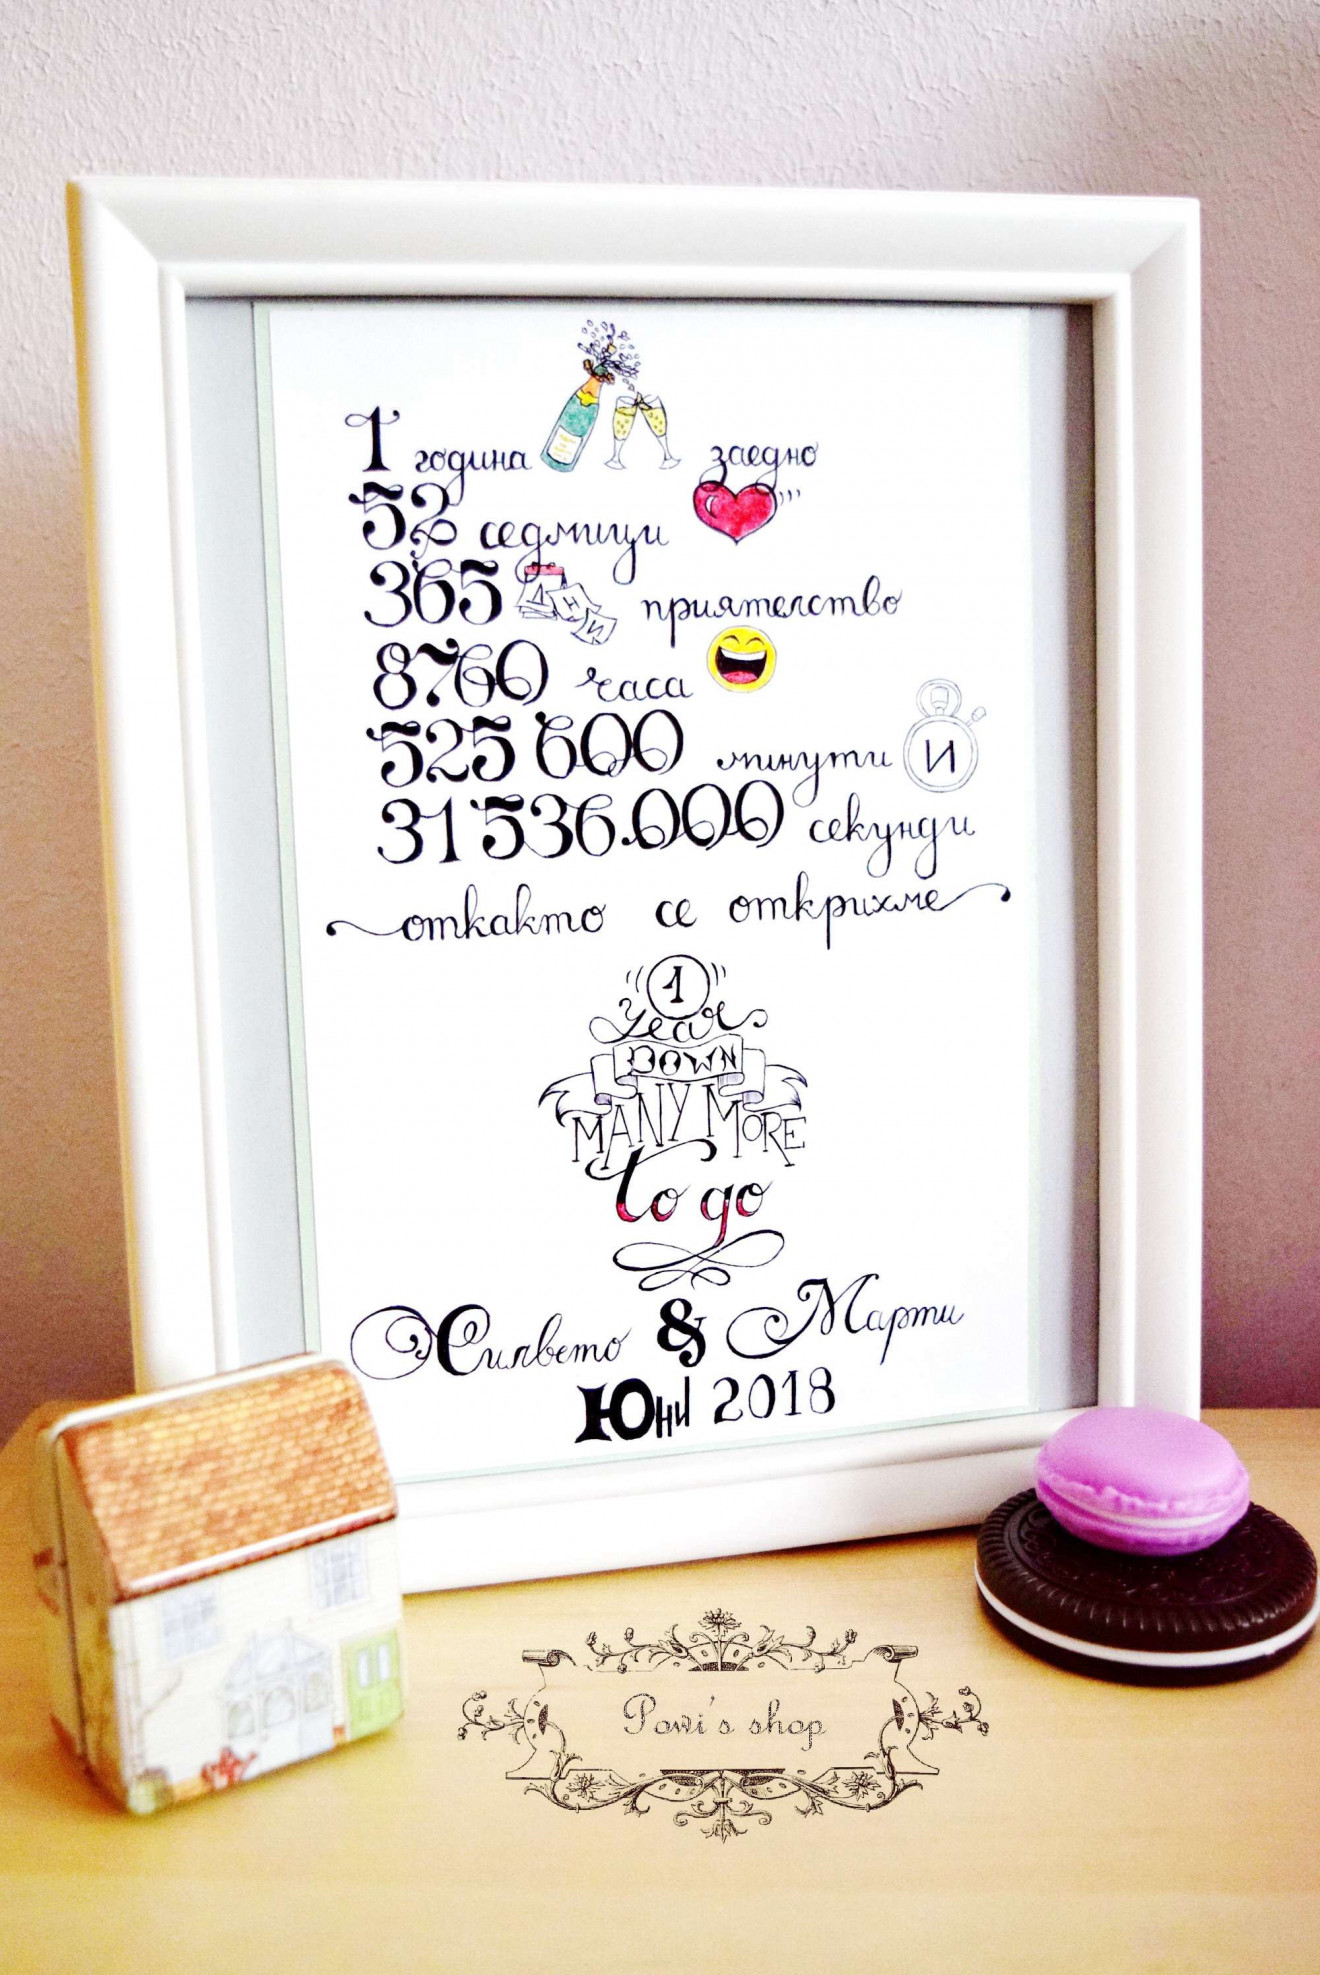 1 година заедно
52 седмици
365 ДНИ приятелство
8760 часа
525 600 минути И
31'536.000 секунди
откакто се открихме
1
Year
DOWN
MANY MORE
to go
Силвето & Марти
Юни 2018
Powi's shop